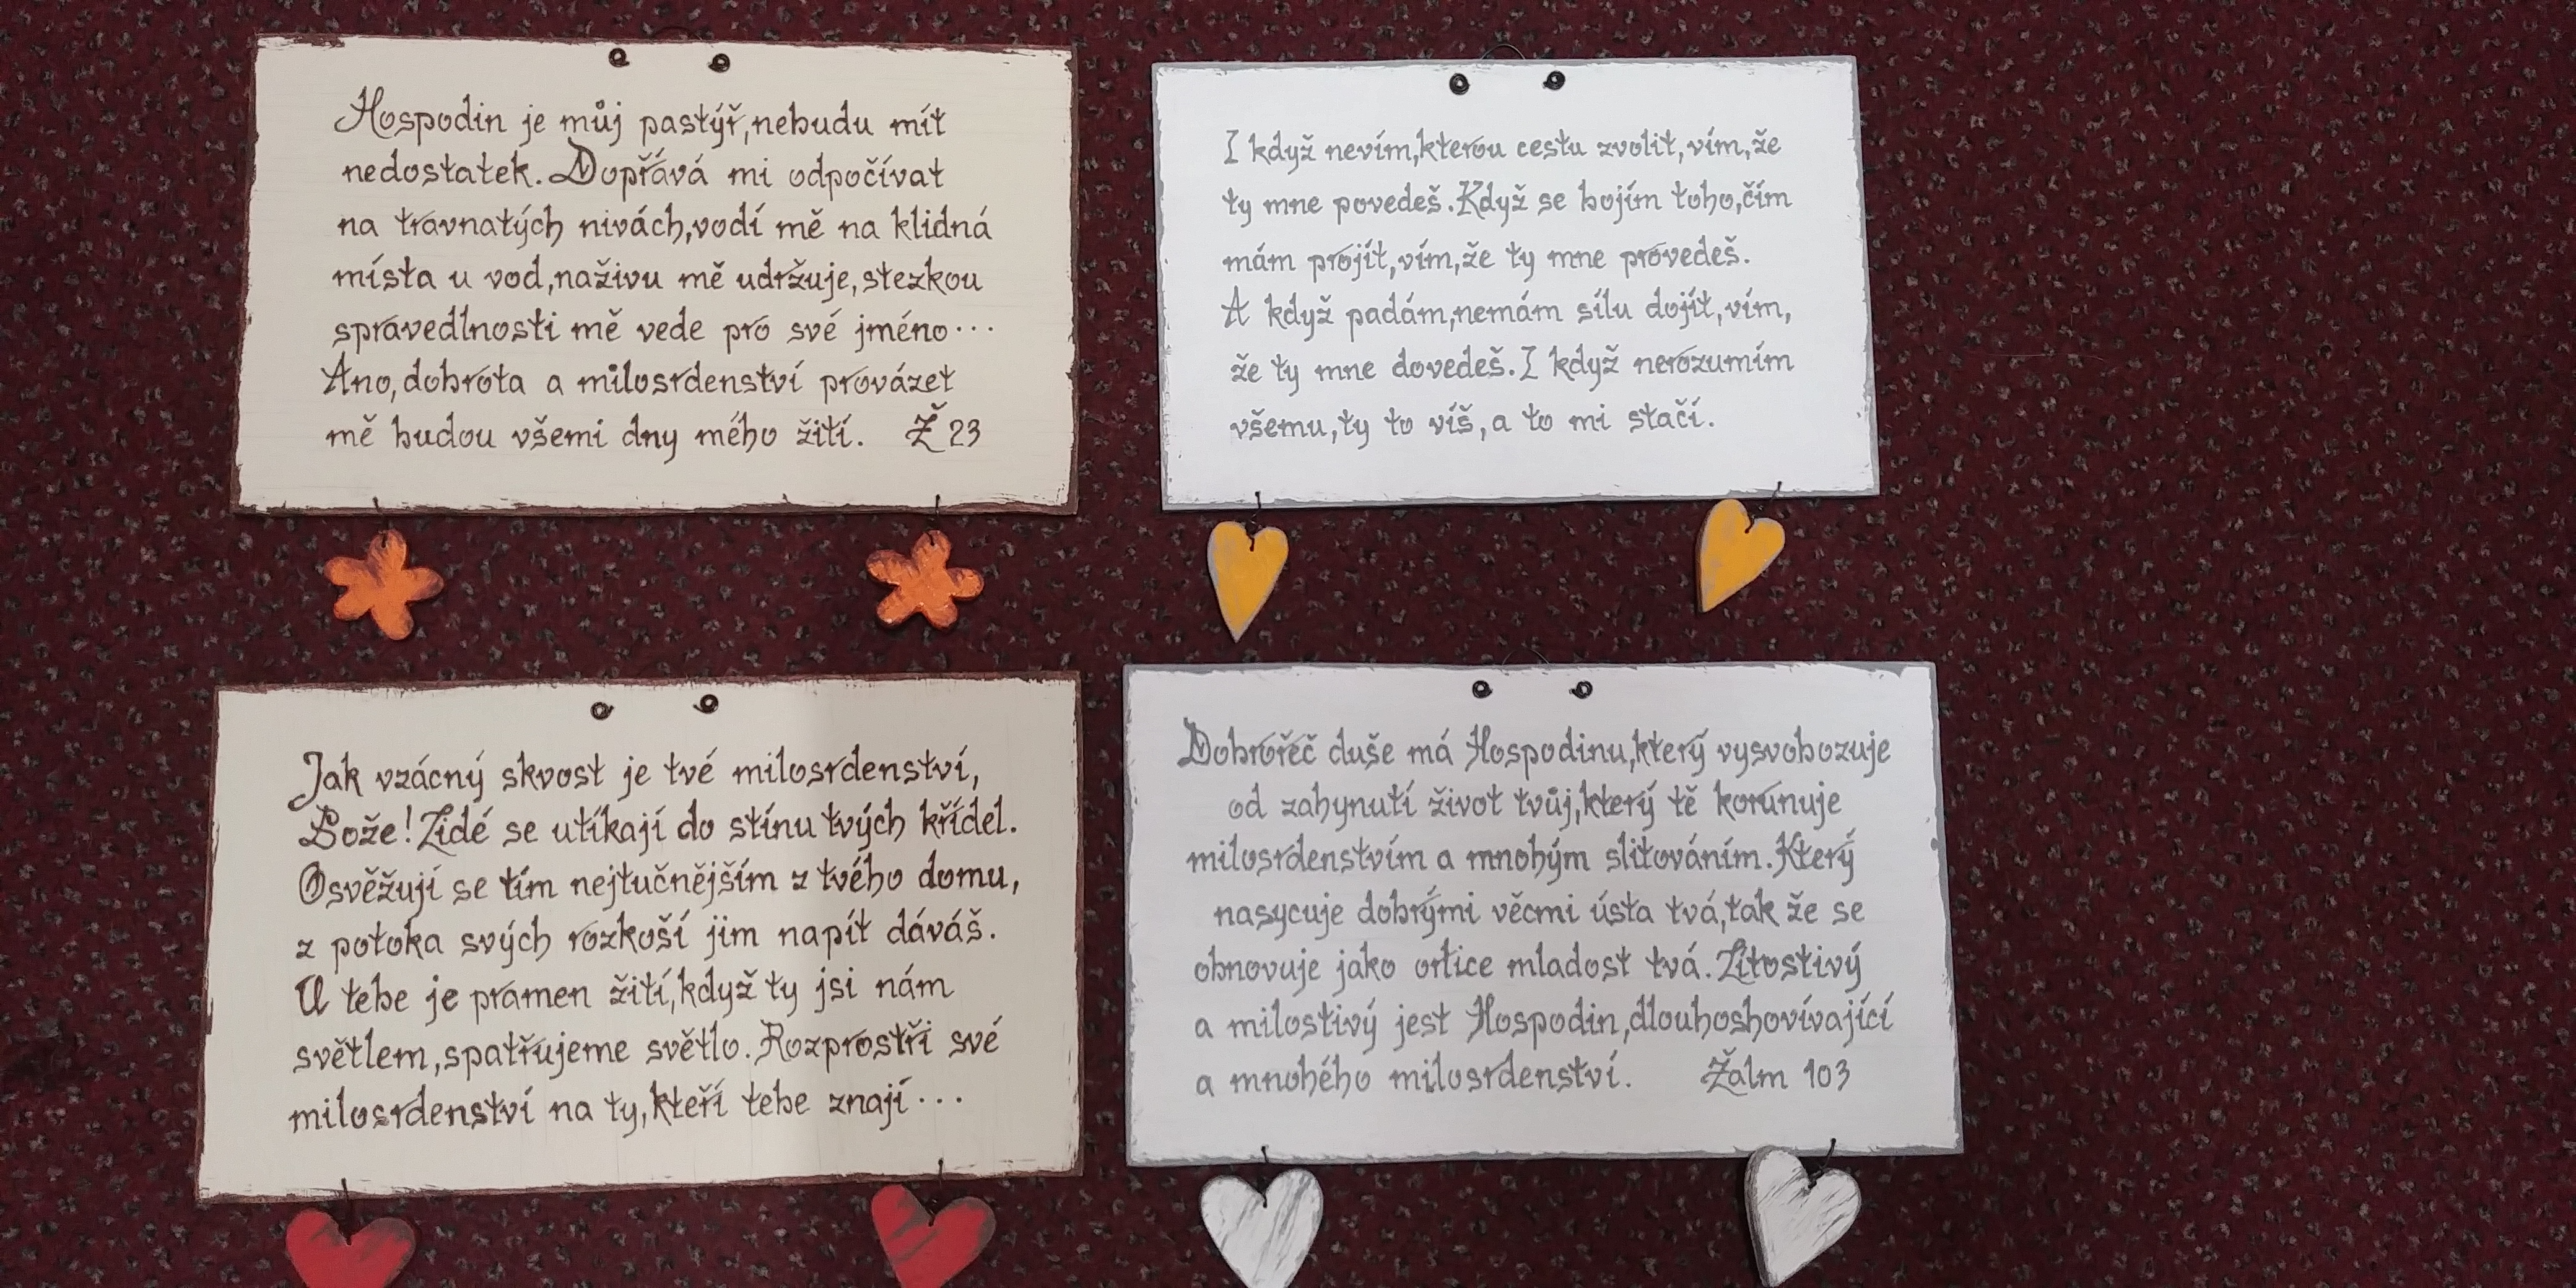 Hospodin je můj pastýř,nebudu mít
nedostatek. Dopřává mi odpočívat
na travnatých nivách,vodí mě na klidná
místa u vod,naživu mě udržuje,stezkou
spravedlnosti mě vede pro své jméno...
Ano,dobrota a milosrdenství provázet
mě budou všemi dny mého žití. Ž 23
I když nevím,kterou cestu zvolit,vím,že
ty mne povedeš.Když se bojím toho,čím
mám projít,vím,že ty mne provedeš.
A když padám,nemám sílu dojít,vím,
že ty mne dovedeš.I když nerozumím
všemu,ty to víš,a to mi stačí.
Jak vzácný skvost je tvé milosrdenství,
Bože!Lidé se utíkají do stínu tvých křídel.
Osvěžují se tím nejtučnějším z tvého domu,
z potoka svých rozkoší jim napít dáváš.
U tebe je pramen žití,když ty jsi nám
světlem,spatřujeme světlo.Rozprostři své
milosrdenství na ty,kteří tebe znají...
Dobrořeč duše má Hospodinu,který vysvobozuje
od zahynutí život tvůj,který tě korunuje
milosrdenstvím a mnohým slitováním.Který
nasycuje dobrými věcmi ústa tvá,tak že se
obnovuje jako orlice mladost tvá.Lítostivý
a milostivý jest Hospodin,dlouhoshovívající
a mnohého milosrdenství. Žalm 103